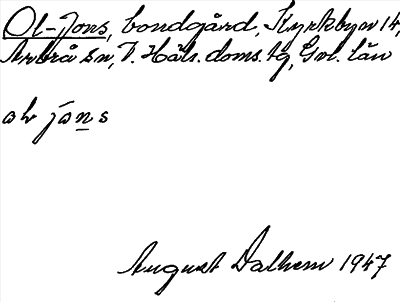 Ol-Jons, bondgård, Kyrkbyn 14,
Arbrå sn, V. Häls. doms. tg, Gvl. län
ol jo̱ns
August Dalhem 1947